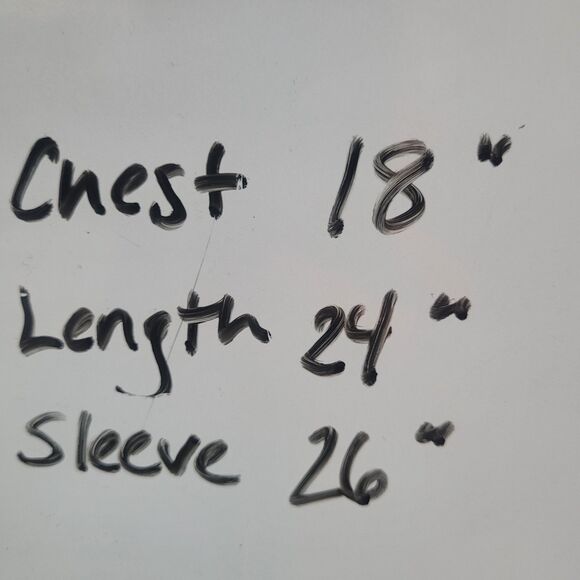 Chest 18"
Length 24"
Sleeve 26"